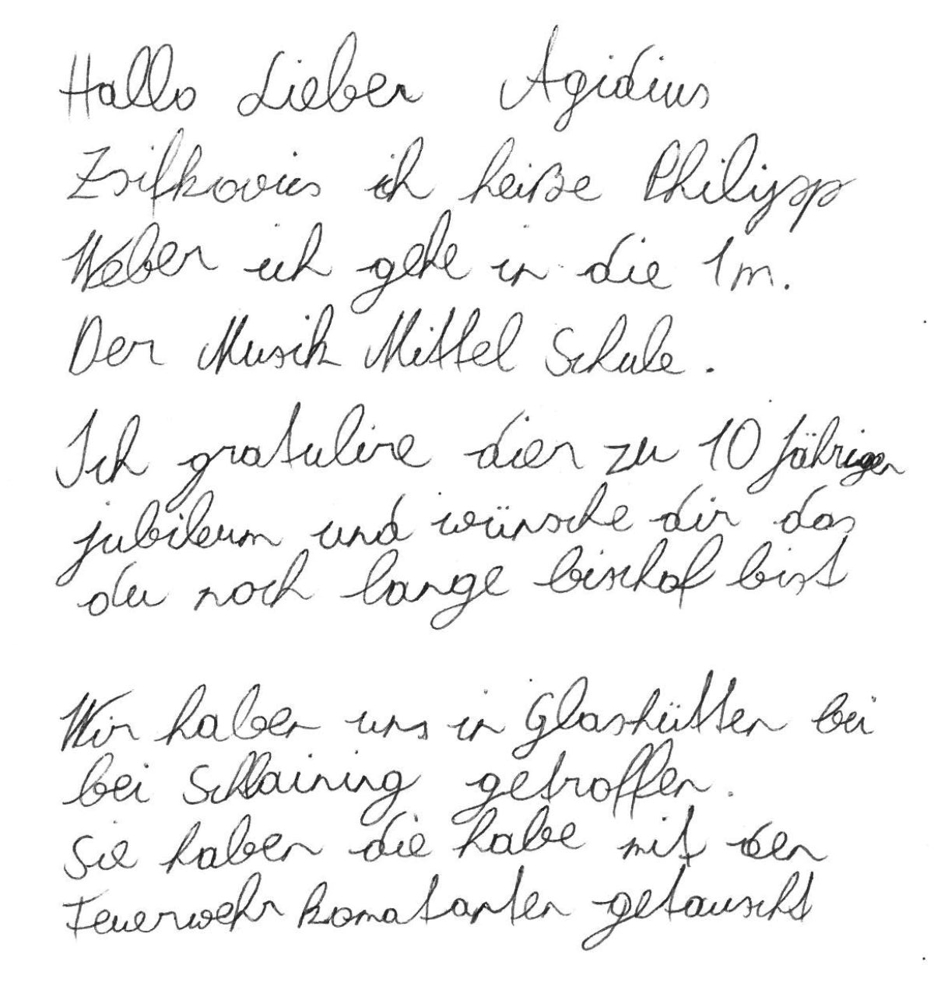 Hallo Lieber Agidius
Zsifkovics ich heiße Philipp
Weber ich gehe in die 1m.
Der Musik Mittel Schule.
Ich gratulire dier zu 10 Jährigen
jubileum und wünsche dir das
du noch lange bischof bist
Wir haben uns in Glashütten bei
bei Schlaining getroffen.
Sie haben die habe mit den
Feuerwehr komatanten getauscht